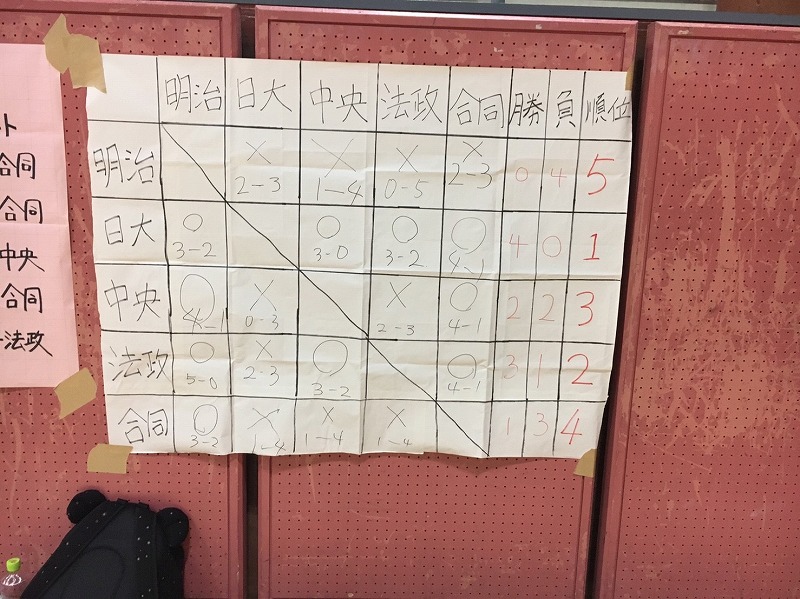 ト
合同
合同
中央
合同
法政
明治 日大 中央 法政 合同 勝 負 順位
明治 × × × × 0 4 5
2-3 1-4 0-5 2-3
日大 ○ ○ ○ ○ 4 0 1
3-2 3-0 3-2 4-1
中央 ○ × × ○ 2 2 3
4-1 0-3 2-3 4-1
法政 ○ × ○ ○ 3 1 2
5-0 2-3 3-2 4-1
合同 ○ × × × 1 3 4
3-2 1-4 1-4 1-4